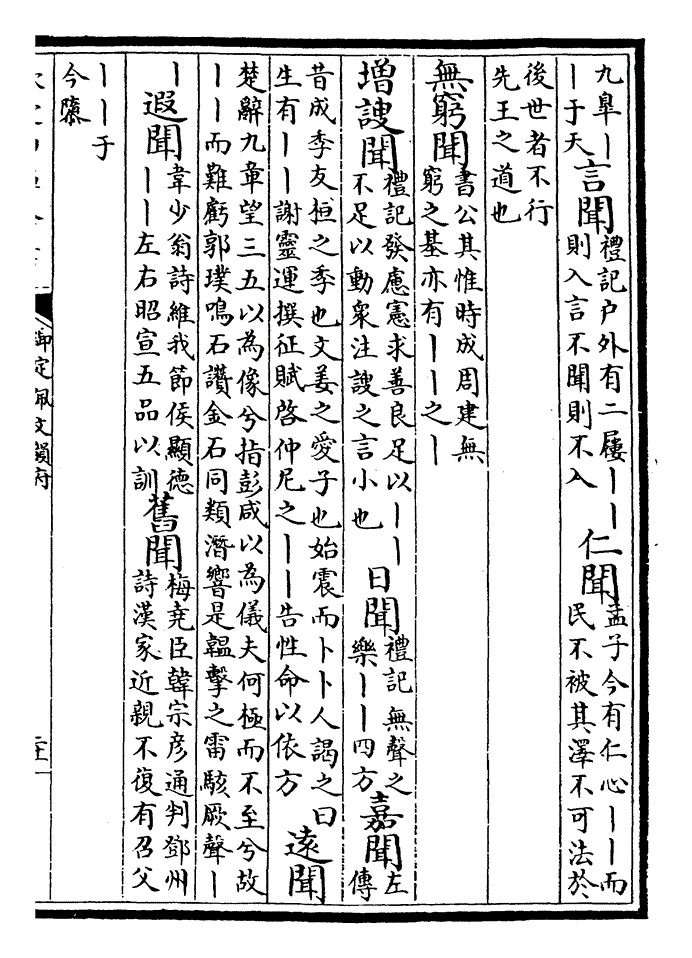 九臯丨
丨于天
言聞
禮記户外有二屨丨丨
則入言不聞則不入
仁聞
孟子今有仁心丨丨而
民不被其澤不可法於
後世者不行
先王之道也
無窮聞
書公其惟時成周建無
窮之基亦有丨丨之丨
増謏聞
禮記發慮憲求善良足以丨丨
不足以動衆注謏之言小也
日聞
禮記無聲之
樂丨丨四方
嘉聞
左
傳
昔成季友桓之季也文姜之愛子也始震而卜卜人謁之曰
生有丨丨謝靈運撰征賦啓仲尼之丨丨告性命以依方
遠聞
楚辭九章望三五以為像兮指彭咸以為儀夫何極而不至兮故
丨丨而難虧郭璞鳴石讚金石同類潛響是韞擊之雷駭厥聲丨
丨
遐聞
韋少翁詩維我節侯顯德
丨丨左右昭宣五品以訓
舊聞
梅堯臣韓宗彦通判鄧州
詩漢家近親不復有召父
丨丨于
今
御定佩文韻府